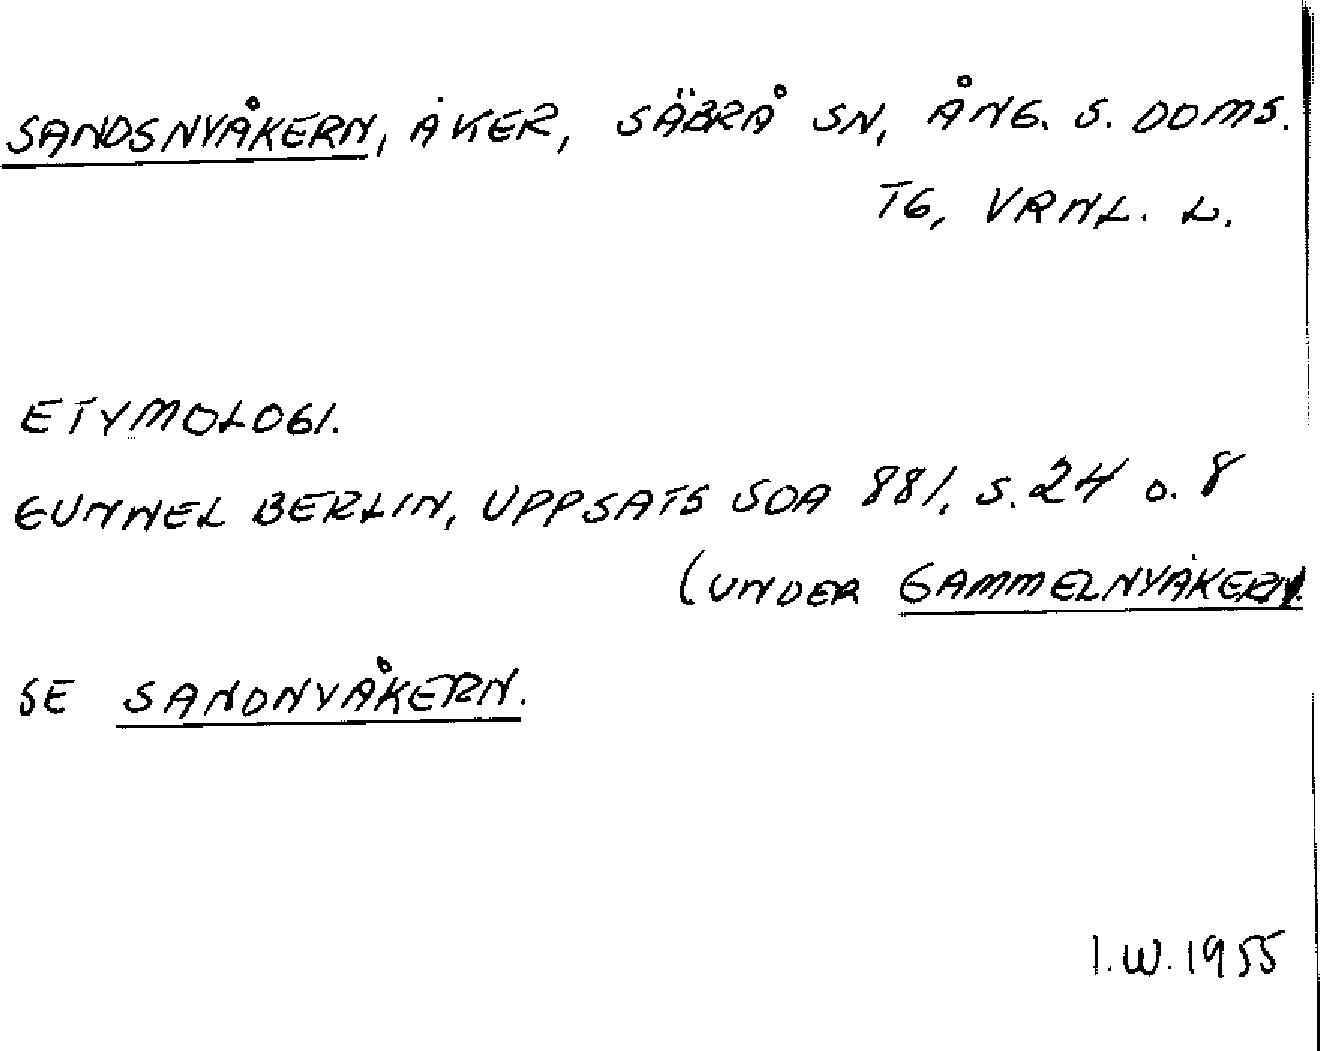 SANDSNYÅKERN, ÅKER, SÄBRÅ SN, ÅNG. S. DOMS.
TG, VRNL. L.
ETYMOLOGI.
GUNNEL BERLIN, UPPSATS SOA 881, S. 24 o. 8
(UNDER GAMMELNYÅKERN.
SE SANDNYÅKERN.
I.W. 1955